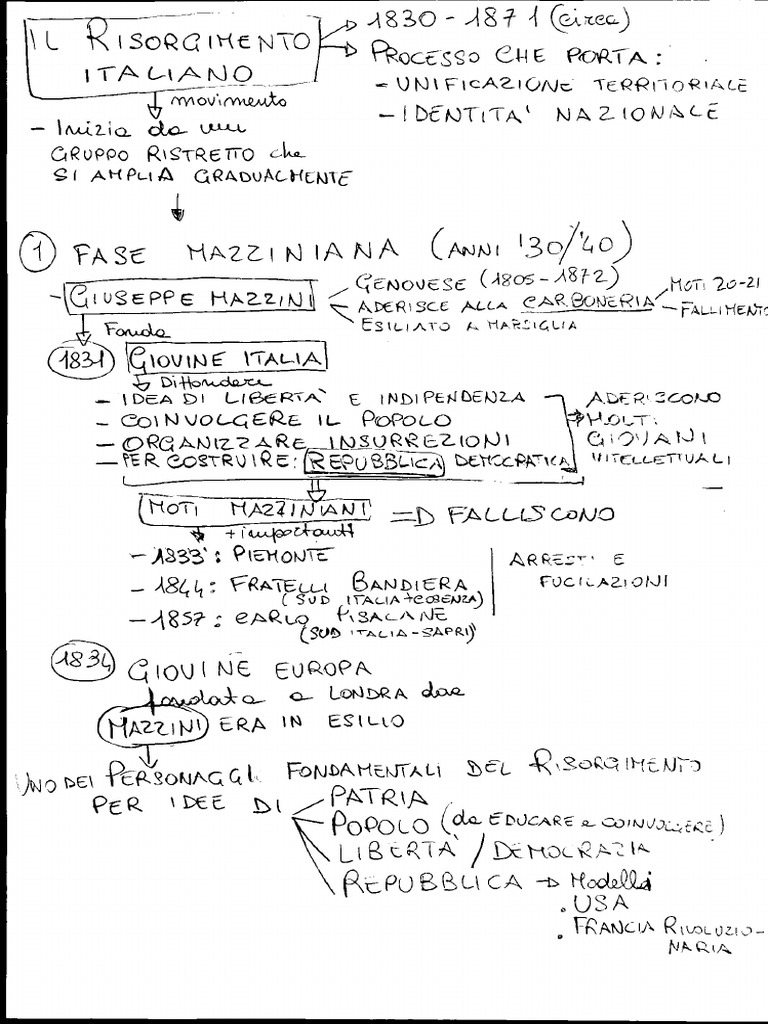 IL RISORGIMENTO ITALIANO
1830-1871 (circa)
PROCESSO CHE PORTA:
- UNIFICAZIONE TERRITORIALE
- IDENTITA' NAZIONALE
movimento
- Inizia da un
GRUPPO RISTRETTO che
SI AMPLIA GRADUALMENTE
1 FASE MAZZINIANA (ANNI '30/'40)
- GIUSEPPE MAZZINI
GENOVESE (1805-1872)
ADERISCE ALLA CARBONERIA
MOTI 20-21
FALLIMENTO
ESILIATO A MARSIGLIA
Fonda
1831 GIOVINE ITALIA
Diffondere
- IDEA DI LIBERTA' E INDIPENDENZA
- COINVOLGERE IL POPOLO
- ORGANIZZARE INSURREZIONI
- PER COSTRUIRE: REPUBBLICA DEMOCRATICA
ADERISCONO
MOLTI
GIOVANI
INTELLETTUALI
MOTI MAZZINIANI => FALLISCONO
+ importanti
- 1833: PIEMONTE
- 1844: FRATELLI BANDIERA
(SUD ITALIA + COSENZA)
- 1857: CARLO PISACANE
(SUD ITALIA - SAPRI)
ARRESTI E
FUCILAZIONI
1834 GIOVINE EUROPA
fondata a LONDRA dove
MAZZINI ERA IN ESILIO
UNO DEI PERSONAGGI FONDAMENTALI DEL RISORGIMENTO
PER IDEE DI
PATRIA
POPOLO (da EDUCARE e COINVOLGERE)
LIBERTA' / DEMOCRAZIA
REPUBBLICA → Modelli
. USA
. FRANCIA RIVOLUZIO-
NARIA